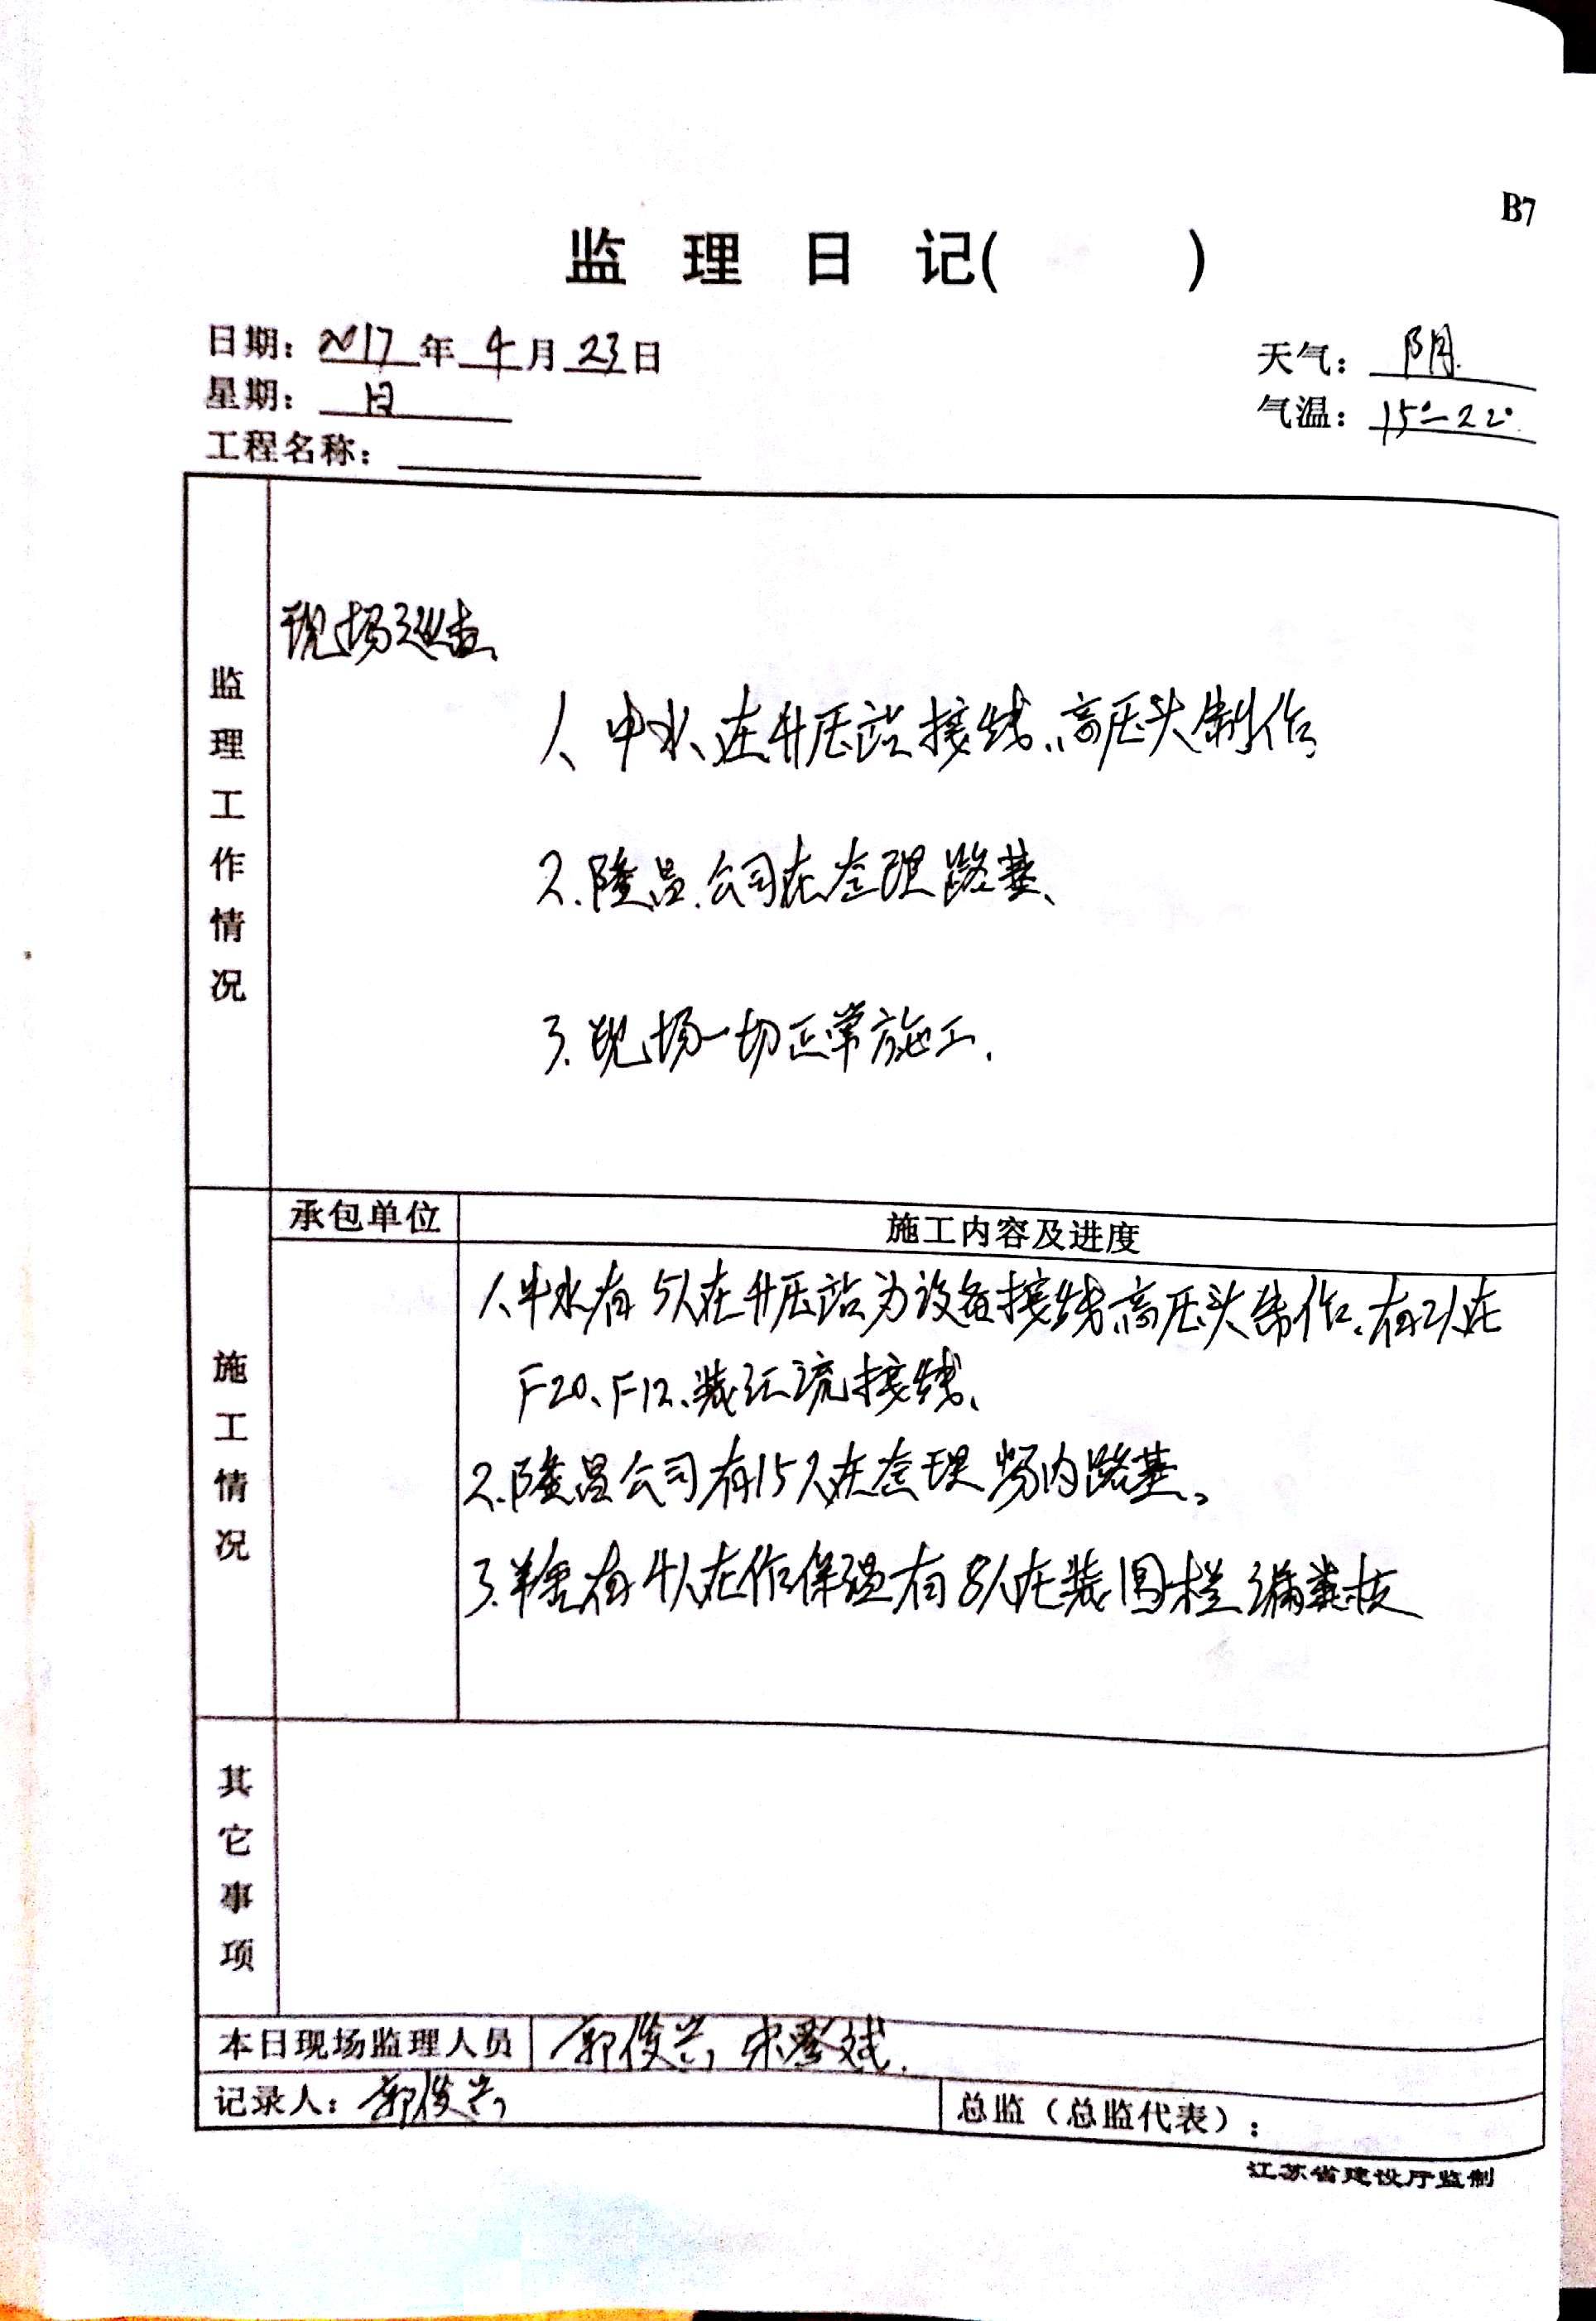 B7
监理日记( )
日期：2017年4月23日
天气：阴.
星期：日
气温：15°-22°.
工程名称：
监理工作情况
现场巡查、
1、中水在升压站接线、高压头制作
2.隆昌.公司在整理路基、
3.现场一切正常施工.
承包单位
施工内容及进度
施工情况
1、中水有5人在升压站为设备接线高压头制作、有2人在
F20、F12、装汇流接线、
2.隆昌公司有15人在整理场内路基。
3. 有4人在作保温有8人在装围栏
其它事项
本日现场监理人员 郭俊兴
记录人：郭俊兴
总监（总监代表）：
江苏省建设厅监制